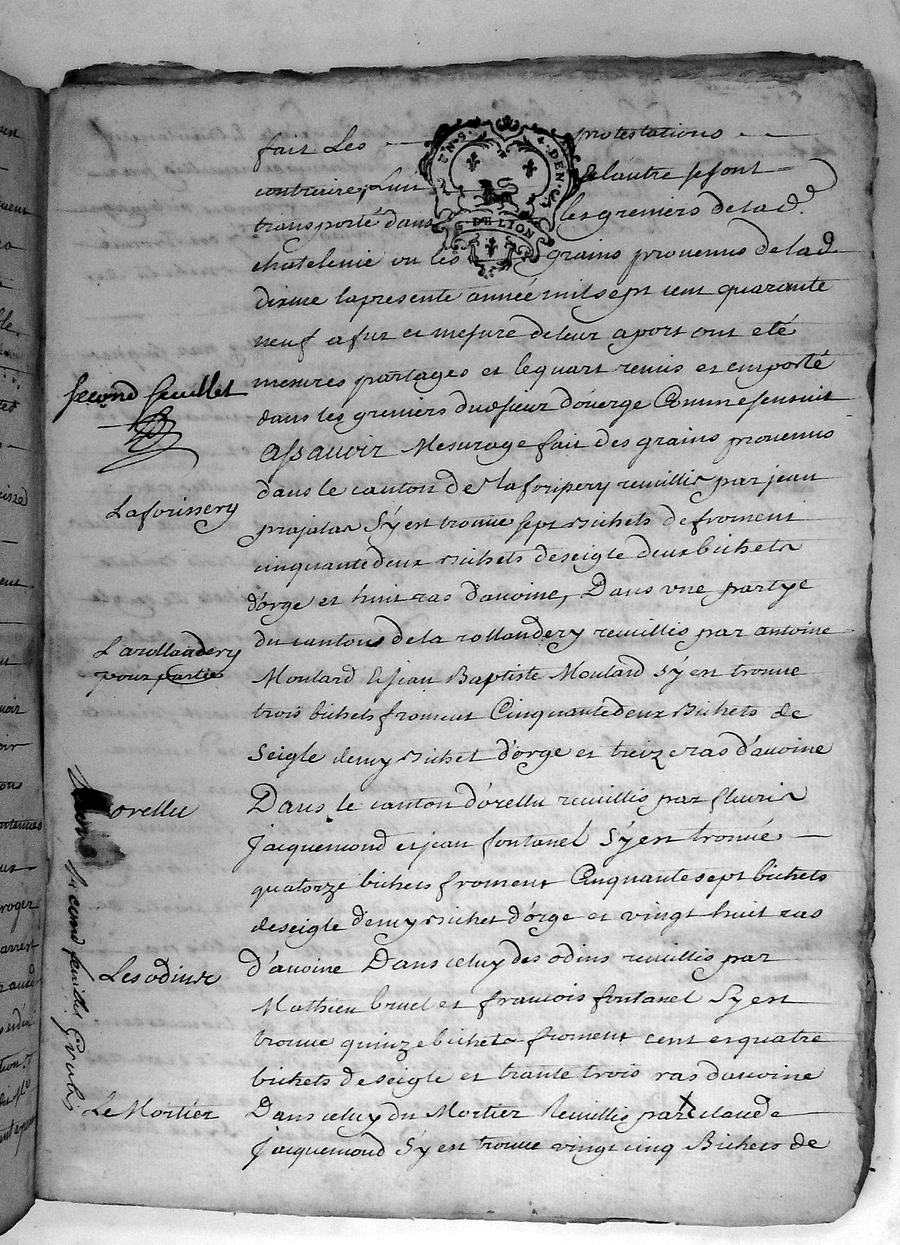 fait Les protestations
contraires L'un de l'autre se sont
transporté dans les greniers de lad.
chatelenie ou les grains prouenus de lad
dixme la presente année mil sept cent quarante
neuf a fur et mesure de leur aport ont eté
mesures partages et le quart remis et emporté
dans les greniers dud sieur d'ouerge Comme sensuit
Assauoir Mesurage fait des grains prouenus
dans le canton de Laforissery reuillis par jean
prajalas S'y est trouué sept Bichets de froment
cinquante deux Bichets de seigle deux bichets
d'orge et huit ras d'auoine, Dans vne partye
du cantons de la rollandery reuillis par antoine
Moulard et jean Baptiste Moulard Sy est trouué
trois bichets froment Cinquante deux Bichets de
Seigle demy Bichet d'orge et treize ras d'auoine
Dans le canton d'orellu reuillis par fleuris
Jacquemond et jean fontanel S'y est trouué
quatorze bichets froment Cinquante sept bichets
de seigle demy Bichet d'orge et vingt huit ras
d'auoine Dans celuy des odins reuillis par
Mathieu bruel et francois fontanel Sy est
trouué quinze bichets froment cent et quatre
bichets de seigle et trante trois ras d'auoine
Dans celuy du Mortier Reuillis par claude
Jacquemond S'y est trouué vingt cinq Bichets de
UN S. 4 DEN CU
G. DE LION
second feuillet
Laforissery
Larollandery
pour partie
orellu
Les odins
Le Mortier
second feuillet